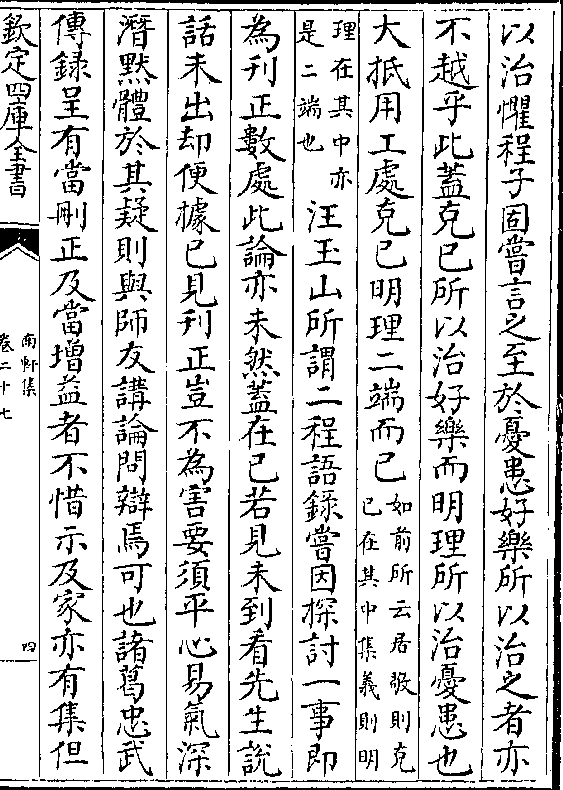 以治懼程子固嘗言之至於憂患好樂所以治之者亦
不越乎此蓋克已所以治好樂而明理所以治憂患也
大抵用工處克已明理二端而已如前所云居敬則克
已在其中集義則明
理在其中亦
是二端也汪玉山所謂二程語錄嘗因探討一事即
為刊正數處此論亦未然蓋在已若見未到看先生說
話未出却便據已見刊正豈不為害要須平心易氣深
潛默體於其疑則與師友講論問辯焉可也諸葛忠武
傳録呈有當刪正及當增益者不惜示及家亦有集但
欽定四庫全書
南軒集
卷二十七
四